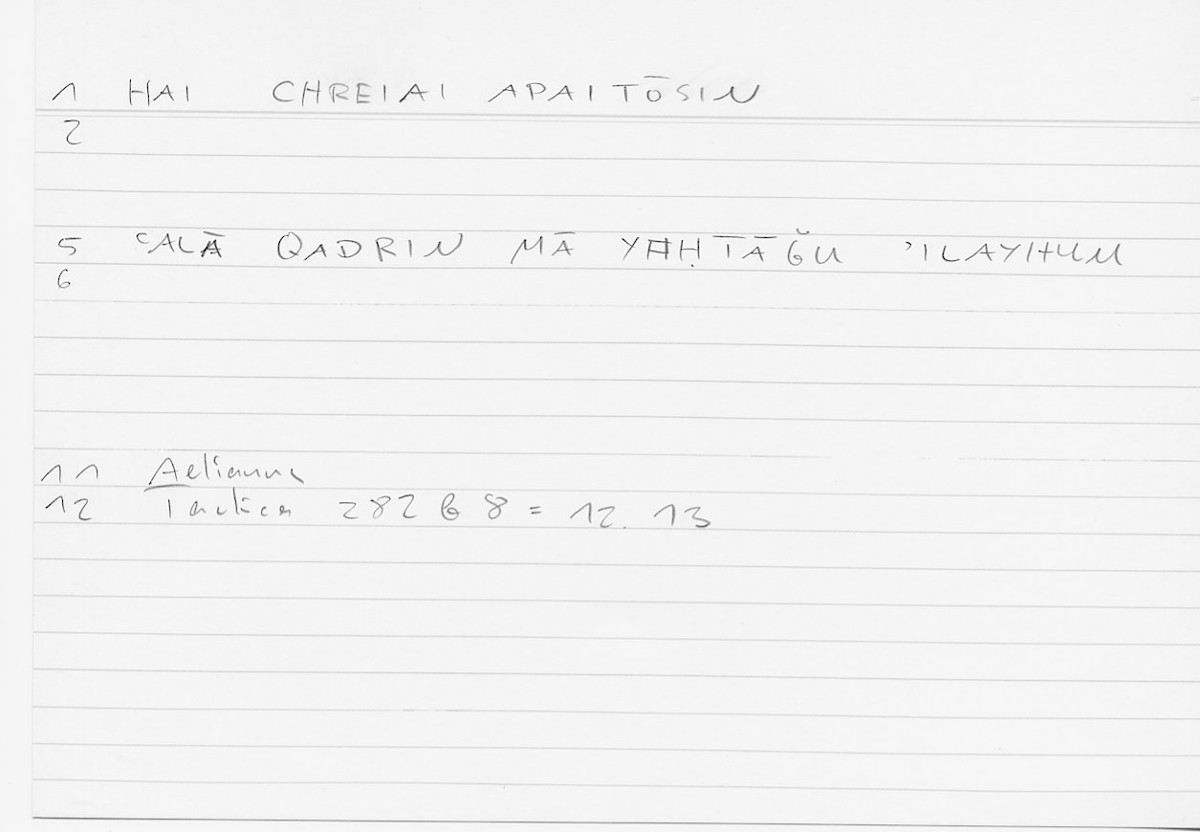 1 HAI CHREIAI APAITŌSIN
2
5 ʿALĀ QADRIN MĀ YAḤTĀǦU ʾILAYHUM
6
11 Aelianus
12 Tactica 282 b 8 = 12. 13